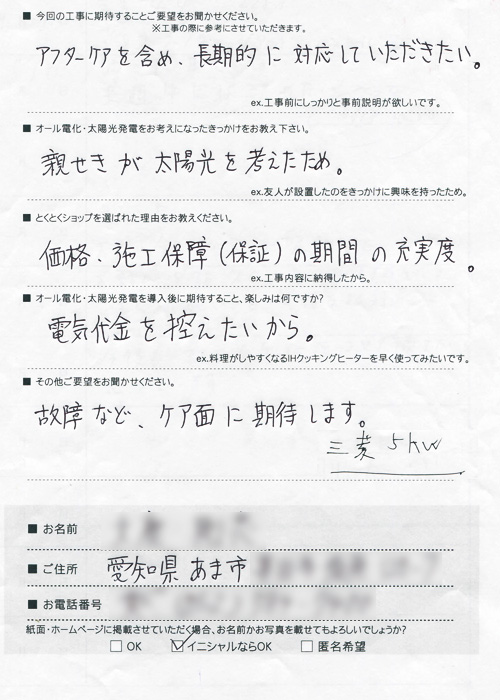 ■ 今回の工事に期待することご要望をお聞かせください。
※工事の際に参考にさせていただきます。
アフターケアを含め、長期的に対応していただきたい。
ex.工事前にしっかりと事前説明が欲しいです。
■ オール電化・太陽光発電をお考えになったきっかけをお教え下さい。
親せきが太陽光を考えたため。
ex.友人が設置したのをきっかけに興味を持ったため。
■ とくとくショップを選ばれた理由をお教えください。
価格、施工保障(保証)の期間の充実度。
ex.工事内容に納得したから。
■ オール電化・太陽光発電を導入後に期待すること、楽しみは何ですか?
電気代金を控えたいから。
ex.料理がしやすくなるIHクッキングヒーターを早く使ってみたいです。
■ その他ご要望をお聞かせください。
故障など、ケア面に期待します。
三菱 5kW
■ お名前
■ ご住所 愛知県あま市
■ お電話番号
紙面・ホームページに掲載させていただく場合、お名前かお写真を載せてもよろしいでしょうか?
□ OK ☑ イニシャルならOK □ 匿名希望